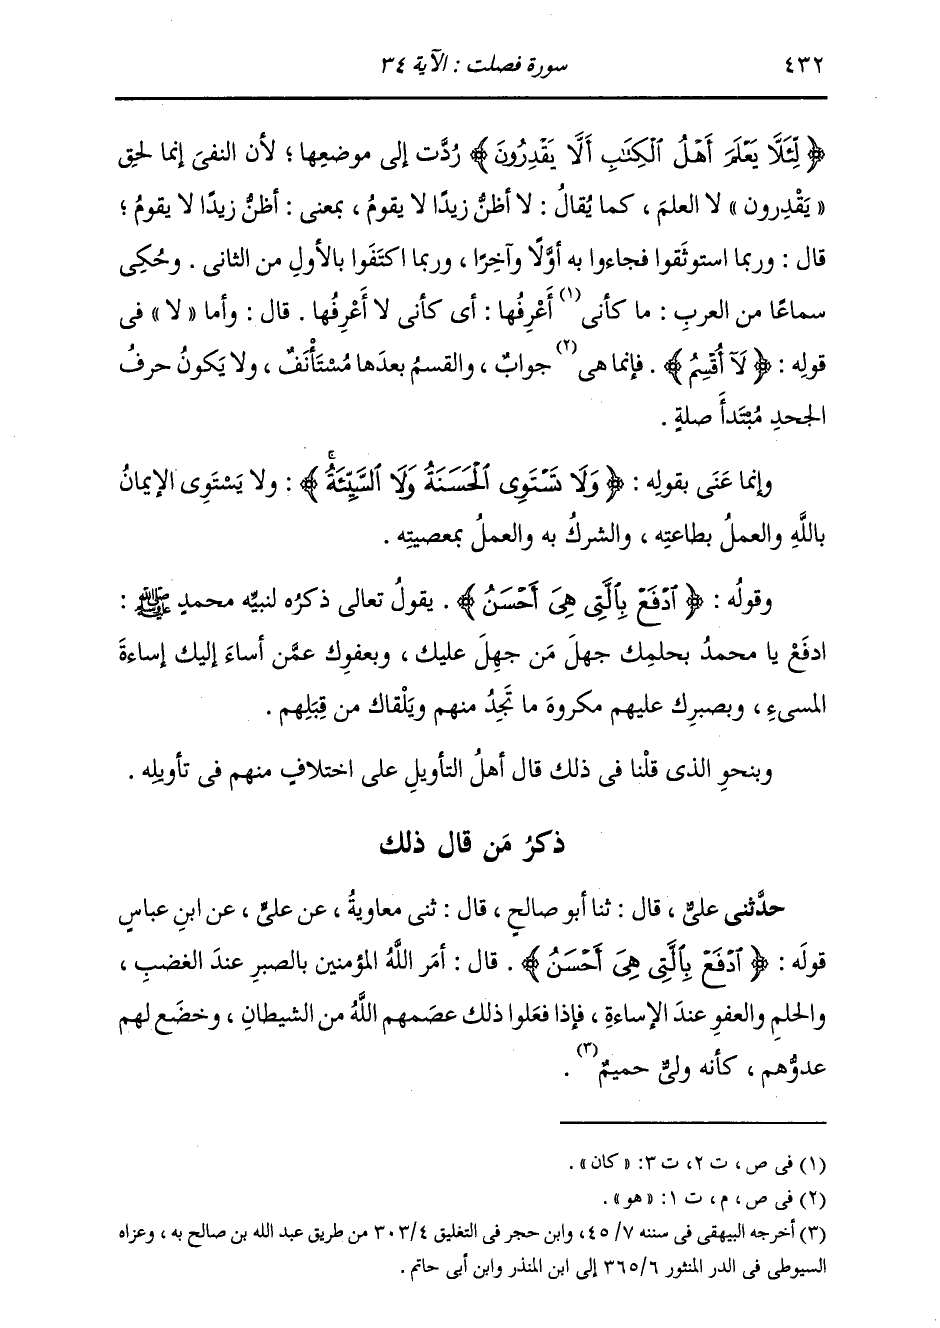 ٤٣٢
سورة فصلت : الآية ٣٤
﴿ لِّئَلَّا يَعْلَمَ أَهْلُ ٱلْكِتَٰبِ أَلَّا يَقْدِرُونَ ﴾ رُدَّت إلى موضعِها ؛ لأن النفىَ إنما لحِق
« يَقْدِرون » لا العلمَ ، كما يُقالُ : لا أظنُّ زيدًا لا يقومُ ، بمعنى : أظنُّ زيدًا لا يقومُ ؛
قال : وربما استوثَقوا فجاءوا به أوَّلًا وآخِرًا ، وربما اكتَفَوا بالأولِ من الثانى . وحُكِى
سماعًا من العربِ : ما كأنى(١) أَعْرِفُها : أى كأنى لا أَعْرِفُها . قال : وأما « لا » فى
قولِه : ﴿ لَآ أُقْسِمُ ﴾ . فإنما هى(٢) جوابٌ ، والقسمُ بعدَها مُسْتَأْنَفٌ ، ولا يَكونُ حرفُ
الجحدِ مُبْتَدأً صلةٍ .
وإنما عَنَى بقولِه : ﴿ وَلَا تَسْتَوِى ٱلْحَسَنَةُ وَلَا ٱلسَّيِّئَةُۚ ﴾ : ولا يَسْتَوِى الإيمانُ
باللَّهِ والعملُ بطاعتِه ، والشركُ به والعملُ بمعصيتِه .
وقولُه : ﴿ ٱدْفَعْ بِٱلَّتِى هِىَ أَحْسَنُ ﴾ . يقولُ تعالى ذكرُه لنبيِّه محمدٍ ﷺ :
ادفَعْ يا محمدُ بحلمِك جهلَ مَن جهِلَ عليك ، وبعفوِك عمَّن أساءَ إليك إساءةَ
المسىءِ ، وبصبرِك عليهم مكروهَ ما تَجِدُ منهم ويَلْقاك من قِبَلِهم .
وبنحوِ الذى قلْنا فى ذلك قال أهلُ التأويلِ على اختلافٍ منهم فى تأويلِه .
ذكرُ مَن قال ذلك
حدَّثنى علىٌّ ، قال : ثنا أبو صالحٍ ، قال : ثنى معاويةُ ، عن علىٍّ ، عن ابنِ عباسٍ
قولَه : ﴿ ٱدْفَعْ بِٱلَّتِى هِىَ أَحْسَنُ ﴾ . قال : أمَر اللَّهُ المؤمنين بالصبرِ عندَ الغضبِ ،
والحلمِ والعفوِ عندَ الإساءةِ ، فإذا فعَلوا ذلك عصَمهم اللَّهُ من الشيطانِ ، وخضَع لهم
عدوُّهم ، كأنه ولىٌّ حميمٌ(٣) .
(١) فى ص ، ت ٢، ت ٣: « كان » .
(٢) فى ص ، م ، ت ١: « هو » .
(٣) أخرجه البيهقى فى سننه ٤٥/٧، وابن حجر فى التغليق ٣٠٣/٤ من طريق عبد الله بن صالح به ، وعزاه
السيوطى فى الدر المنثور ٣٦٥/٦ إلى ابن المنذر وابن أبى حاتم .